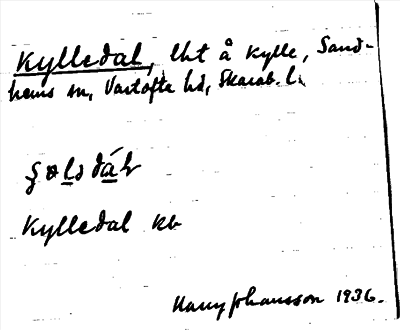 Kylledal, lht å Kylle, Sand-
hems sn, Vartofte hd, Skarab. l.
Kylledal kb
Harry Johansson 1936.